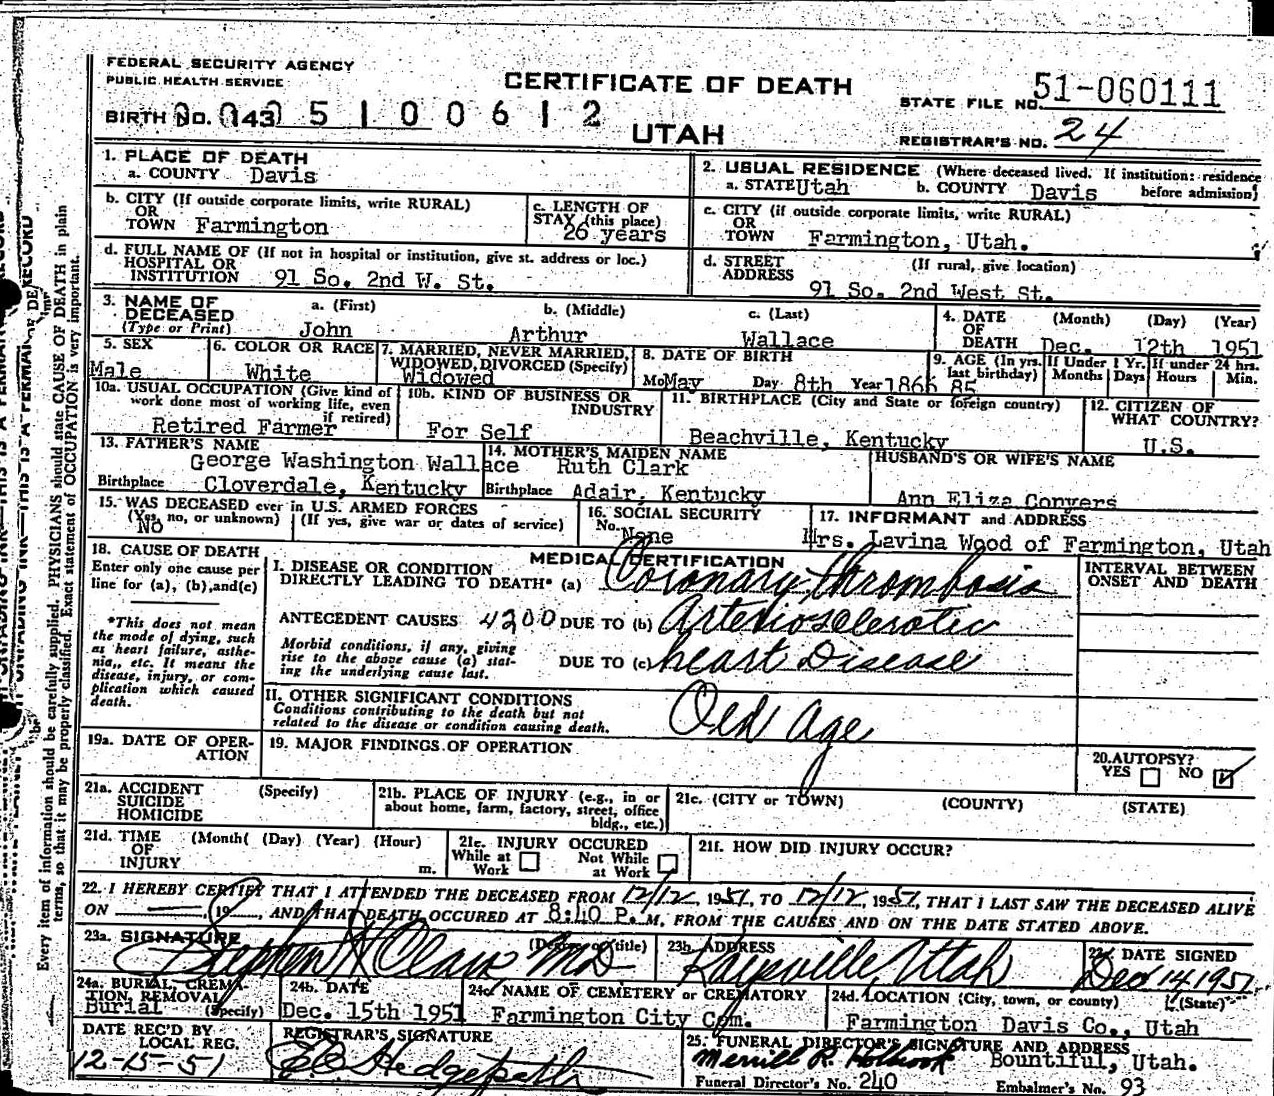 FEDERAL SECURITY AGENCY
PUBLIC HEALTH SERVICE
CERTIFICATE OF DEATH
STATE FILE NO. 51-060111
BIRTH No. (143) 5 1 0 0 6 1 2
UTAH
REGISTRAR'S NO. 24
1. PLACE OF DEATH
a. COUNTY Davis
2. USUAL RESIDENCE (Where deceased lived. If institution: residence before admission)
a. STATE Utah b. COUNTY Davis
b. CITY (If outside corporate limits, write RURAL)
OR
TOWN Farmington
c. LENGTH OF
STAY (this place)
26 years
c. CITY (if outside corporate limits, write RURAL)
OR
TOWN Farmington, Utah.
d. FULL NAME OF (If not in hospital or institution, give st. address or loc.)
HOSPITAL OR
INSTITUTION 91 So. 2nd W. St.
d. STREET (If rural, give location)
ADDRESS
91 So. 2nd West St.
3. NAME OF a. (First) b. (Middle) c. (Last)
DECEASED
(Type or Print) John Arthur Wallace
4. DATE (Month) (Day) (Year)
OF
DEATH Dec. 12th 1951
5. SEX
Male
6. COLOR OR RACE
White
7. MARRIED, NEVER MARRIED,
WIDOWED, DIVORCED (Specify)
Widowed
8. DATE OF BIRTH
Mo May Day 8th Year 1866
9. AGE (In yrs. last birthday)
85
If Under 1 Yr.
Months Days
If under 24 hrs.
Hours Min.
10a. USUAL OCCUPATION (Give kind of
work done most of working life, even
if retired)
Retired Farmer
10b. KIND OF BUSINESS OR
INDUSTRY
For Self
11. BIRTHPLACE (City and State or foreign country)
Beachville, Kentucky
12. CITIZEN OF
WHAT COUNTRY?
U.S.
13. FATHER'S NAME
George Washington Wallace
Birthplace Cloverdale, Kentucky
14. MOTHER'S MAIDEN NAME
Ruth Clark
Birthplace Adair, Kentucky
HUSBAND'S OR WIFE'S NAME
Ann Eliza Conyers
15. WAS DECEASED ever in U.S. ARMED FORCES
(Yes, no, or unknown) (If yes, give war or dates of service)
No
16. SOCIAL SECURITY
No. None
17. INFORMANT and ADDRESS
Mrs. Lavina Wood of Farmington, Utah
18. CAUSE OF DEATH
Enter only one cause per
line for (a), (b), and (c)
*This does not mean
the mode of dying, such
as heart failure, asthe-
nia,, etc. It means the
disease, injury, or com-
plication which caused
death.
MEDICAL CERTIFICATION
I. DISEASE OR CONDITION
DIRECTLY LEADING TO DEATH* (a) Coronary thrombosis
ANTECEDENT CAUSES 4200 DUE TO (b) Arteriosclerotic
Morbid conditions, if any, giving
rise to the above cause (a) stat-
ing the underlying cause last.
DUE TO (c) heart Disease
INTERVAL BETWEEN
ONSET AND DEATH
II. OTHER SIGNIFICANT CONDITIONS
Conditions contributing to the death but not
related to the disease or condition causing death.
Old Age
19a. DATE OF OPER-
ATION
19. MAJOR FINDINGS OF OPERATION
20. AUTOPSY?
YES NO
21a. ACCIDENT (Specify)
SUICIDE
HOMICIDE
21b. PLACE OF INJURY (e.g., in or
about home, farm, factory, street, office
bldg., etc.)
21c. (CITY or TOWN) (COUNTY) (STATE)
21d. TIME (Month( (Day) (Year) (Hour)
OF
INJURY m.
21e. INJURY OCCURED
While at Work Not While at Work
21f. HOW DID INJURY OCCUR?
22. I HEREBY CERTIFY THAT I ATTENDED THE DECEASED FROM 12/12, 1951, TO 12/12, 1951, THAT I LAST SAW THE DECEASED ALIVE
ON , 19 , AND THAT DEATH OCCURED AT 8:40 P. M, FROM THE CAUSES AND ON THE DATE STATED ABOVE.
23a. SIGNATURE (Degree or title)
Stephen MD
23b. ADDRESS
Kaysville, Utah
DATE SIGNED
Dec 14, 1951
24a. BURIAL, CREMA-
TION, REMOVAL
(Specify)
Burial
24b. DATE
Dec. 15th 1951
24c. NAME OF CEMETERY or CREMATORY
Farmington City Cem.
24d. LOCATION (City, town, or county) (State)
Farmington Davis Co., Utah
DATE REC'D BY
LOCAL REG.
12-15-51
REGISTRAR'S SIGNATURE
25. FUNERAL DIRECTOR'S SIGNATURE AND ADDRESS
Merrill R. Holbrook Bountiful, Utah.
Funeral Director's No. 240 Embalmer's No. 93
Every item of information should be carefully supplied. PHYSICIANS should state CAUSE OF DEATH in plain
terms, so that it may be properly classified. Exact statement of OCCUPATION is very important.